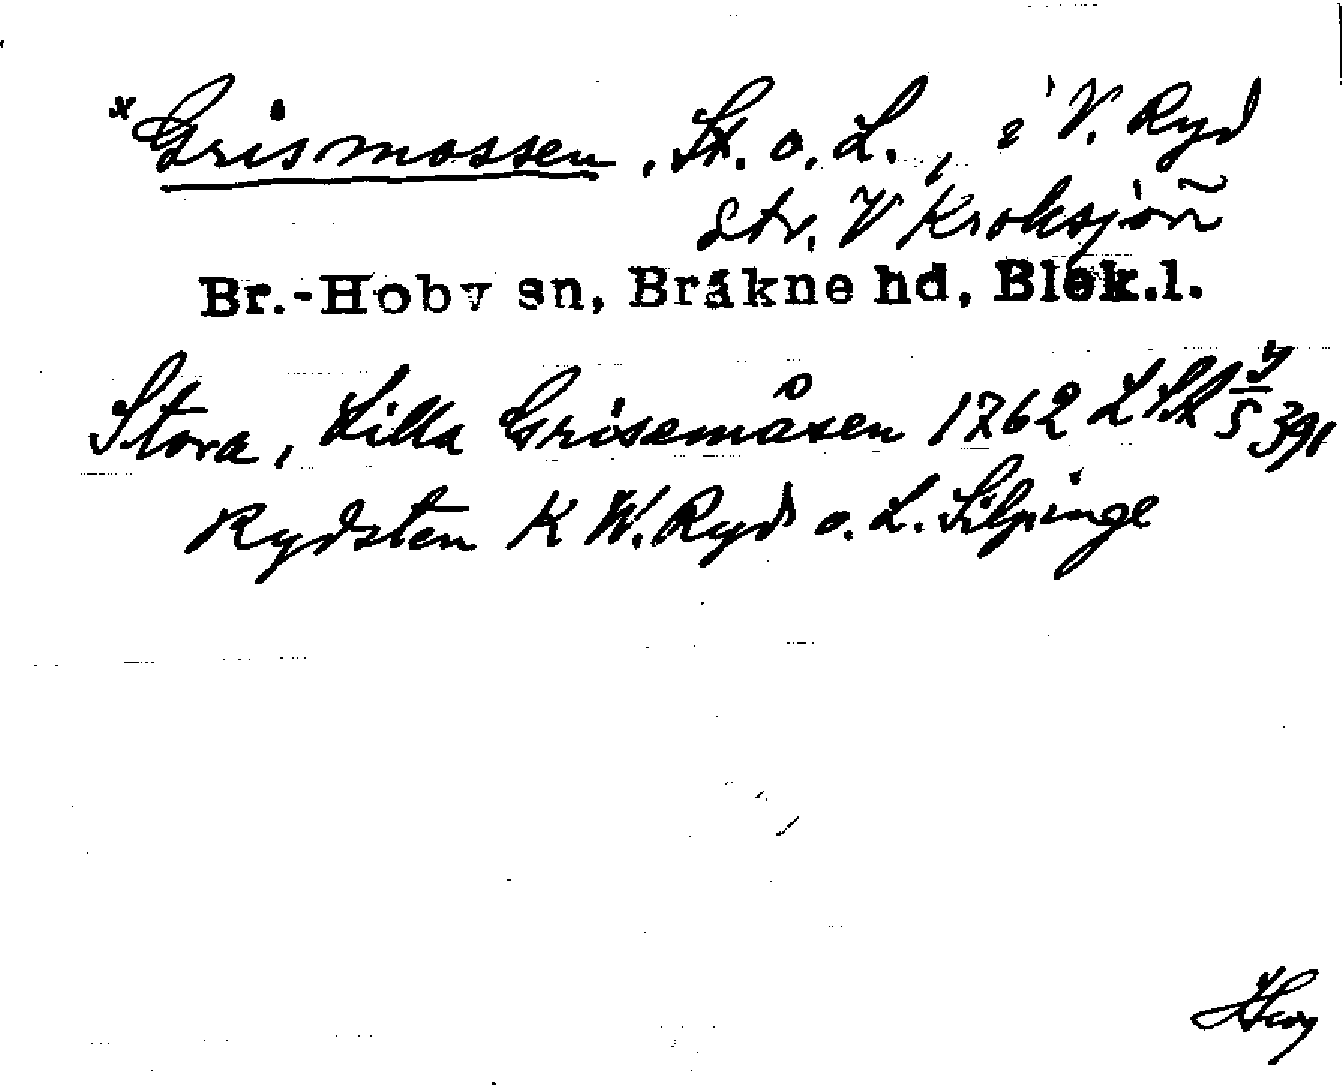 x Grismossen, St. o. L., i V. Ryd
str. V Kroksjön
Br.-Hoby sn, Bräkne hd, Blek.l.
Stora, Lilla Grisemåsen 1762 LSA 7/5 391
Rydsten K W. Ryd o. L. Silpinge